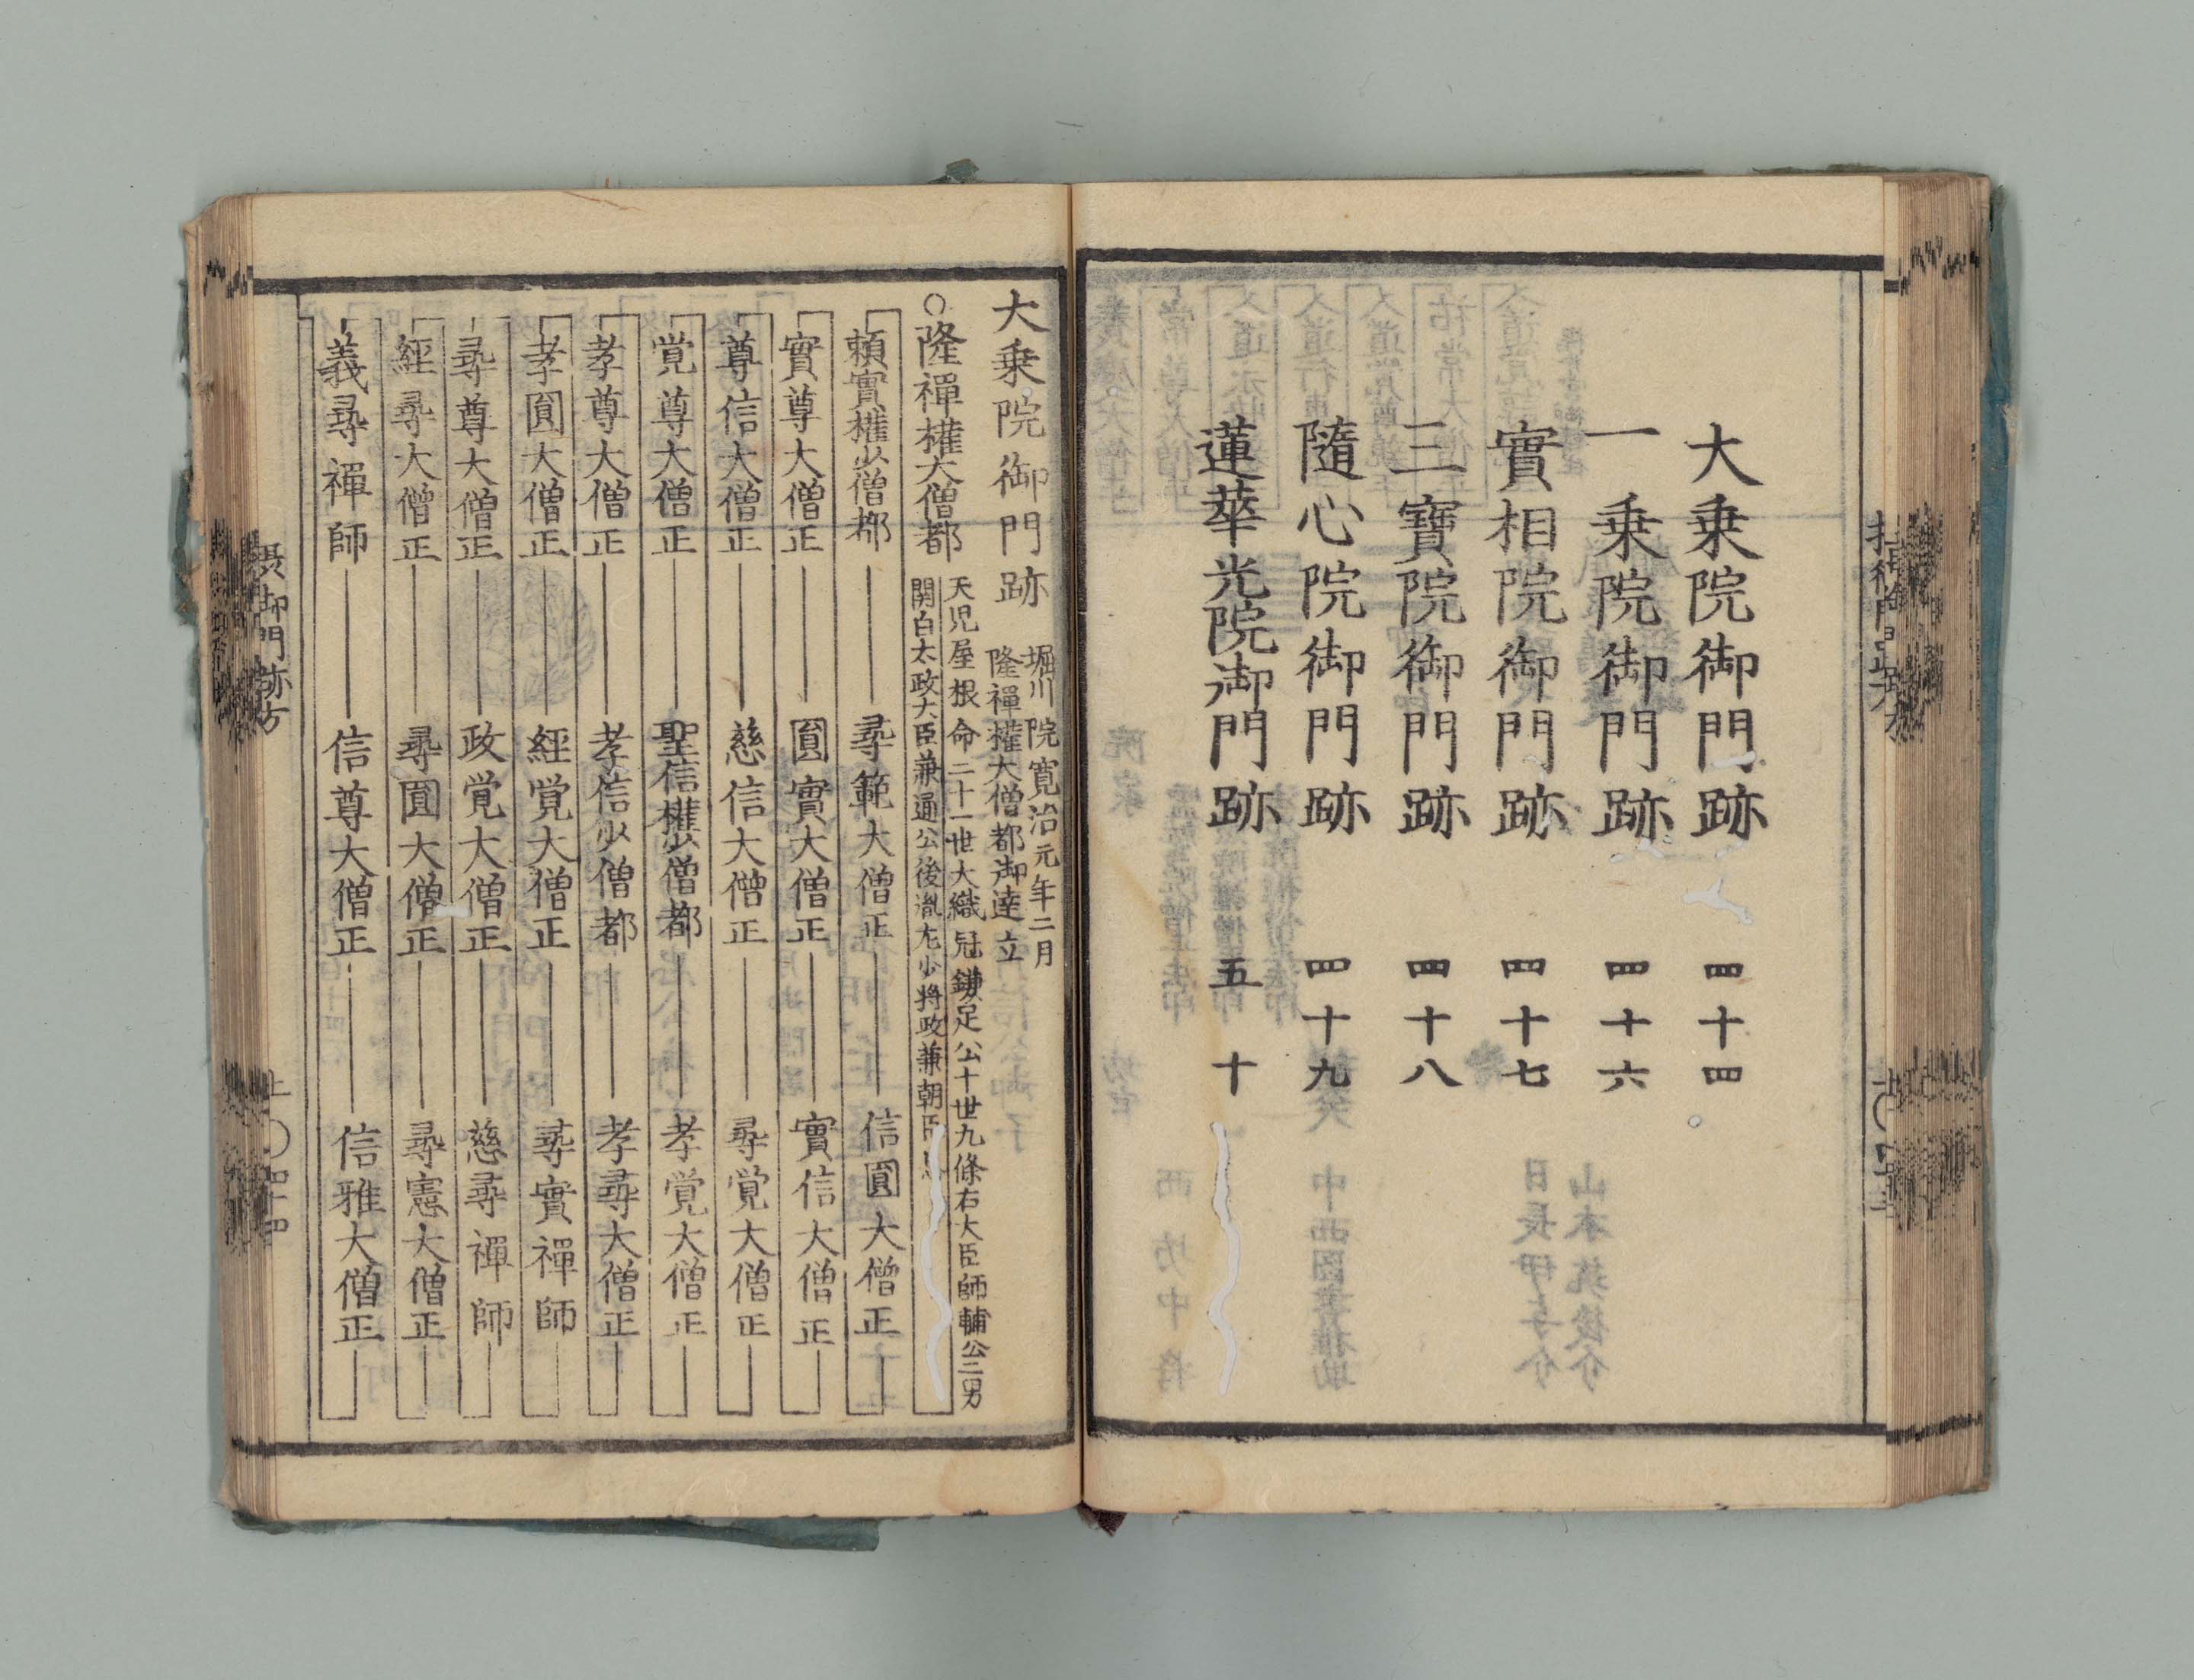 大乗院御門跡 四十四
一乗院御門跡 四十六
實相院御門跡 四十七
三寶院御門跡 四十八
隨心院御門跡 四十九
蓮華光院御門跡 五十
大乗院御門跡 堀川院寛治元年二月
隆禪權大僧都御達立
○隆禪權大僧都 天児屋根命二十一世大織冠鎌足公十世九條右大臣師輔公二男
関白太政大臣兼通公後胤左少将政兼朝臣
頼實權少僧都 尋範大僧正 信圓大僧正
實尊大僧正 圓實大僧正 實信大僧正
尊信大僧正 慈信大僧正 尋覚大僧正
覚尊大僧正 聖信權少僧都 孝覚大僧正
孝尊大僧正 孝信少僧都 孝尋大僧正
孝圓大僧正 経覚大僧正 尋實禪師
尋尊大僧正 政覚大僧正 慈尋禪師
經尋大僧正 尋圓大僧正 尋憲大僧正
義尋禪師 信尊大僧正 信雅大僧正
摂御門跡方 上○四十四